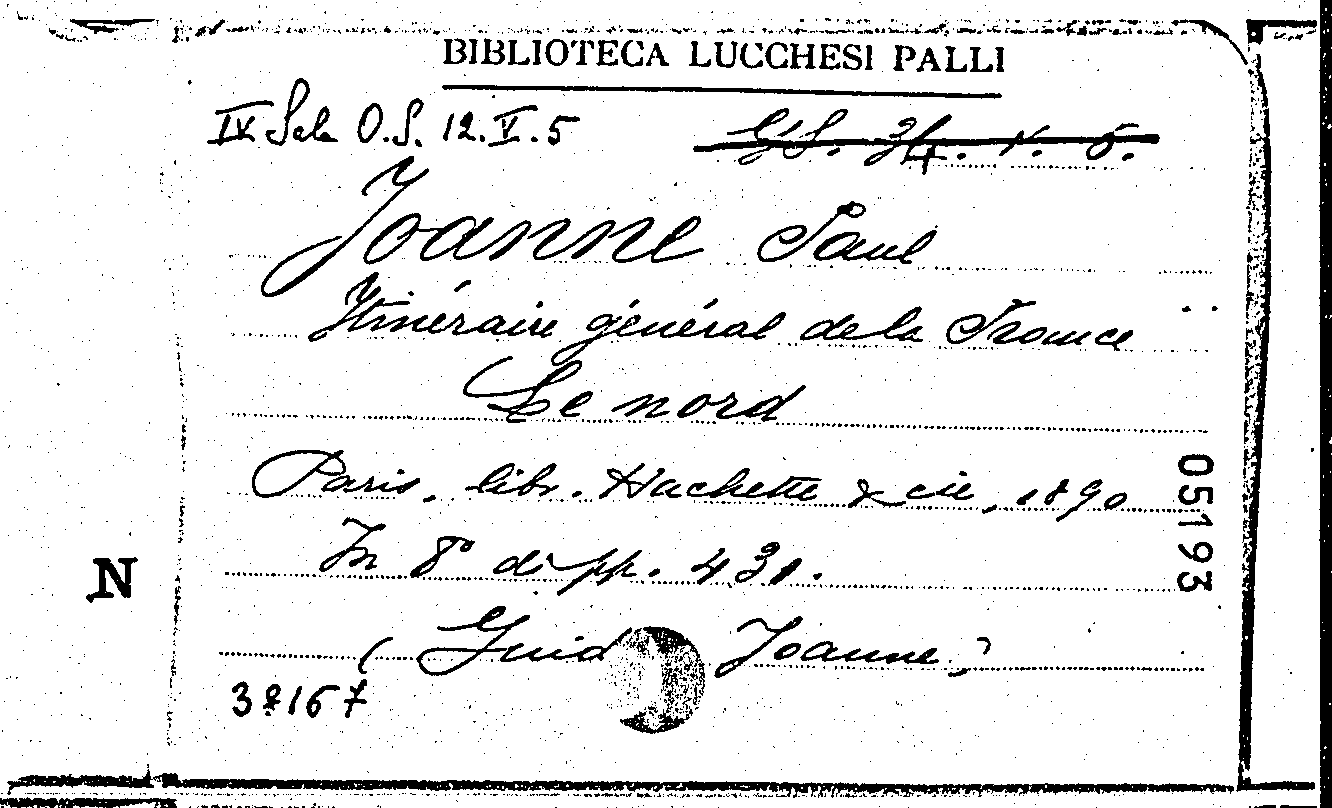 BIBLIOTECA LUCCHESI PALLI
IV Sala O.S. 12. V. 5
G.S. 34. V. 5.
Joanne Paul
Itinéraire général de la France
Le nord
Paris, libr. Hachette & cie, 1890
In 8° di pp. 431.
(Guid Joanne)
05193
N